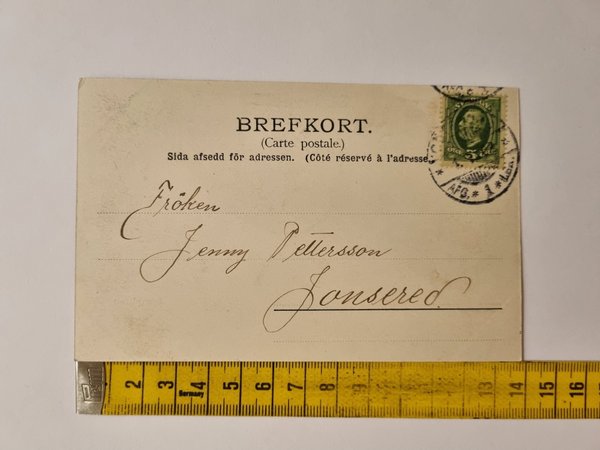 BREFKORT.
(Carte postale.)
Sida afsedd för adressen. (Côté réservé à l'adresse
Fröken
Jenny Pettersson
Jonsered.
AFG. * 1
2 3 4 5 6 7 8 9 10 11 12 13 14 15 16
Germany